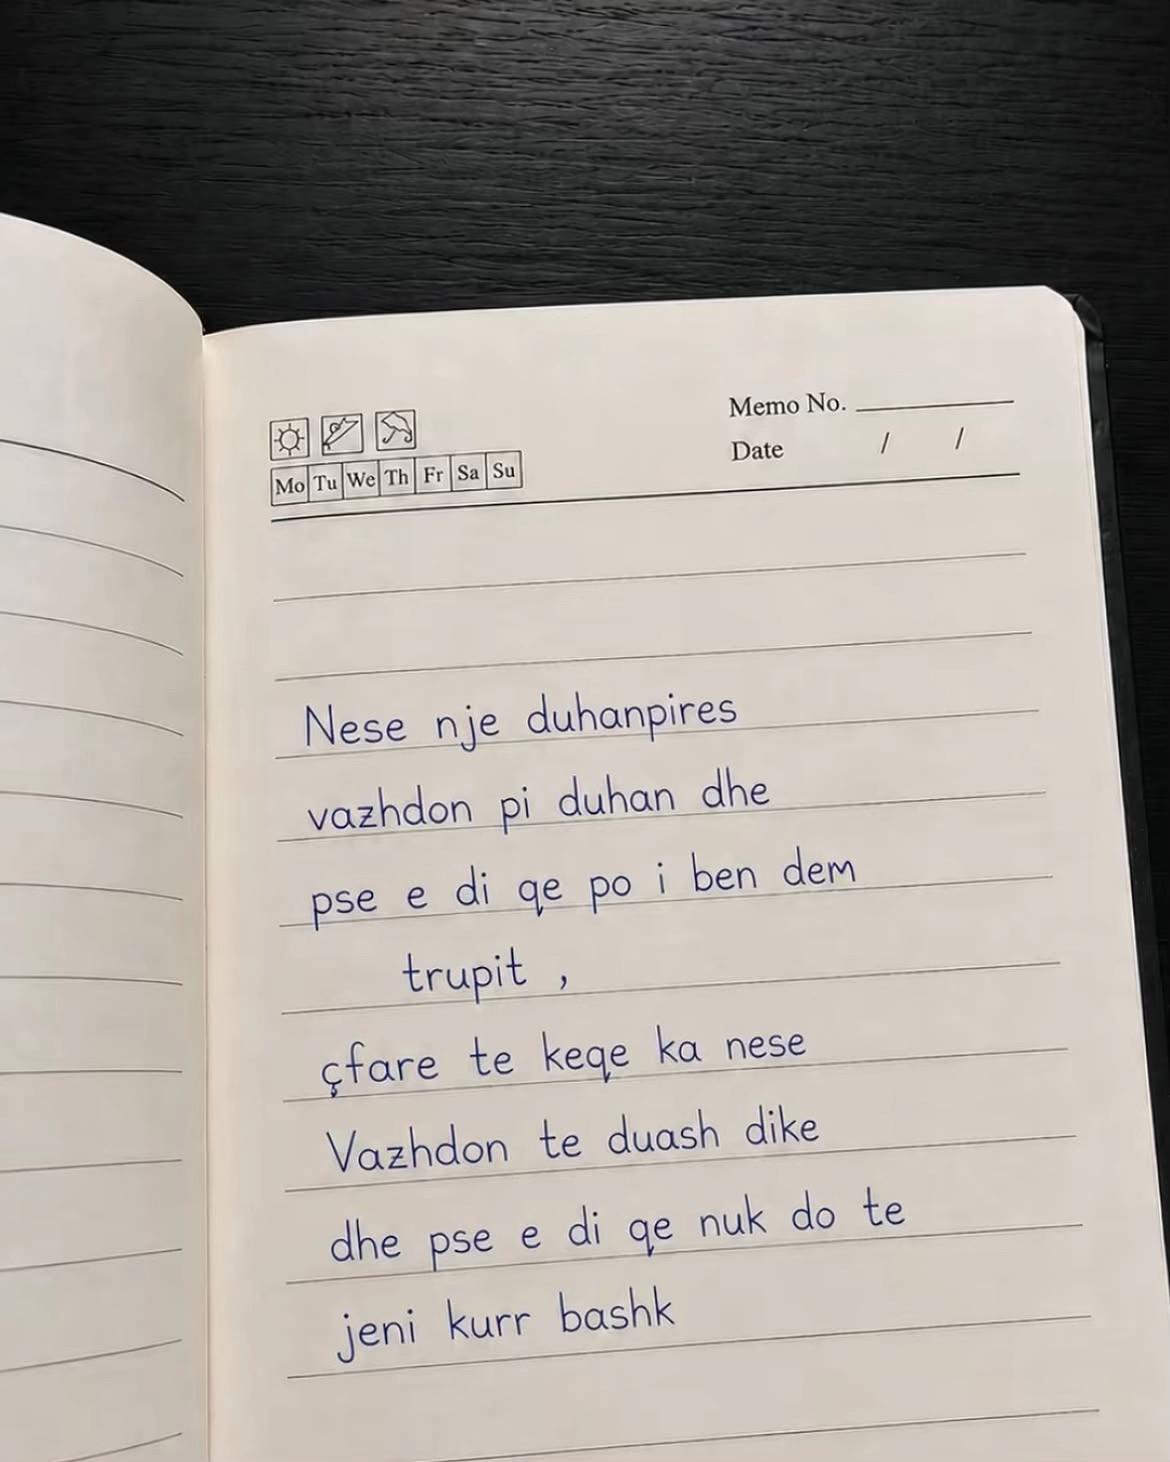 Memo No.
Date / /
Mo Tu We Th Fr Sa Su
Nese nje duhanpires
vazhdon pi duhan dhe
pse e di qe po i ben dem
trupit ,
çfare te keqe ka nese
Vazhdon te duash dike
dhe pse e di qe nuk do te
jeni kurr bashk